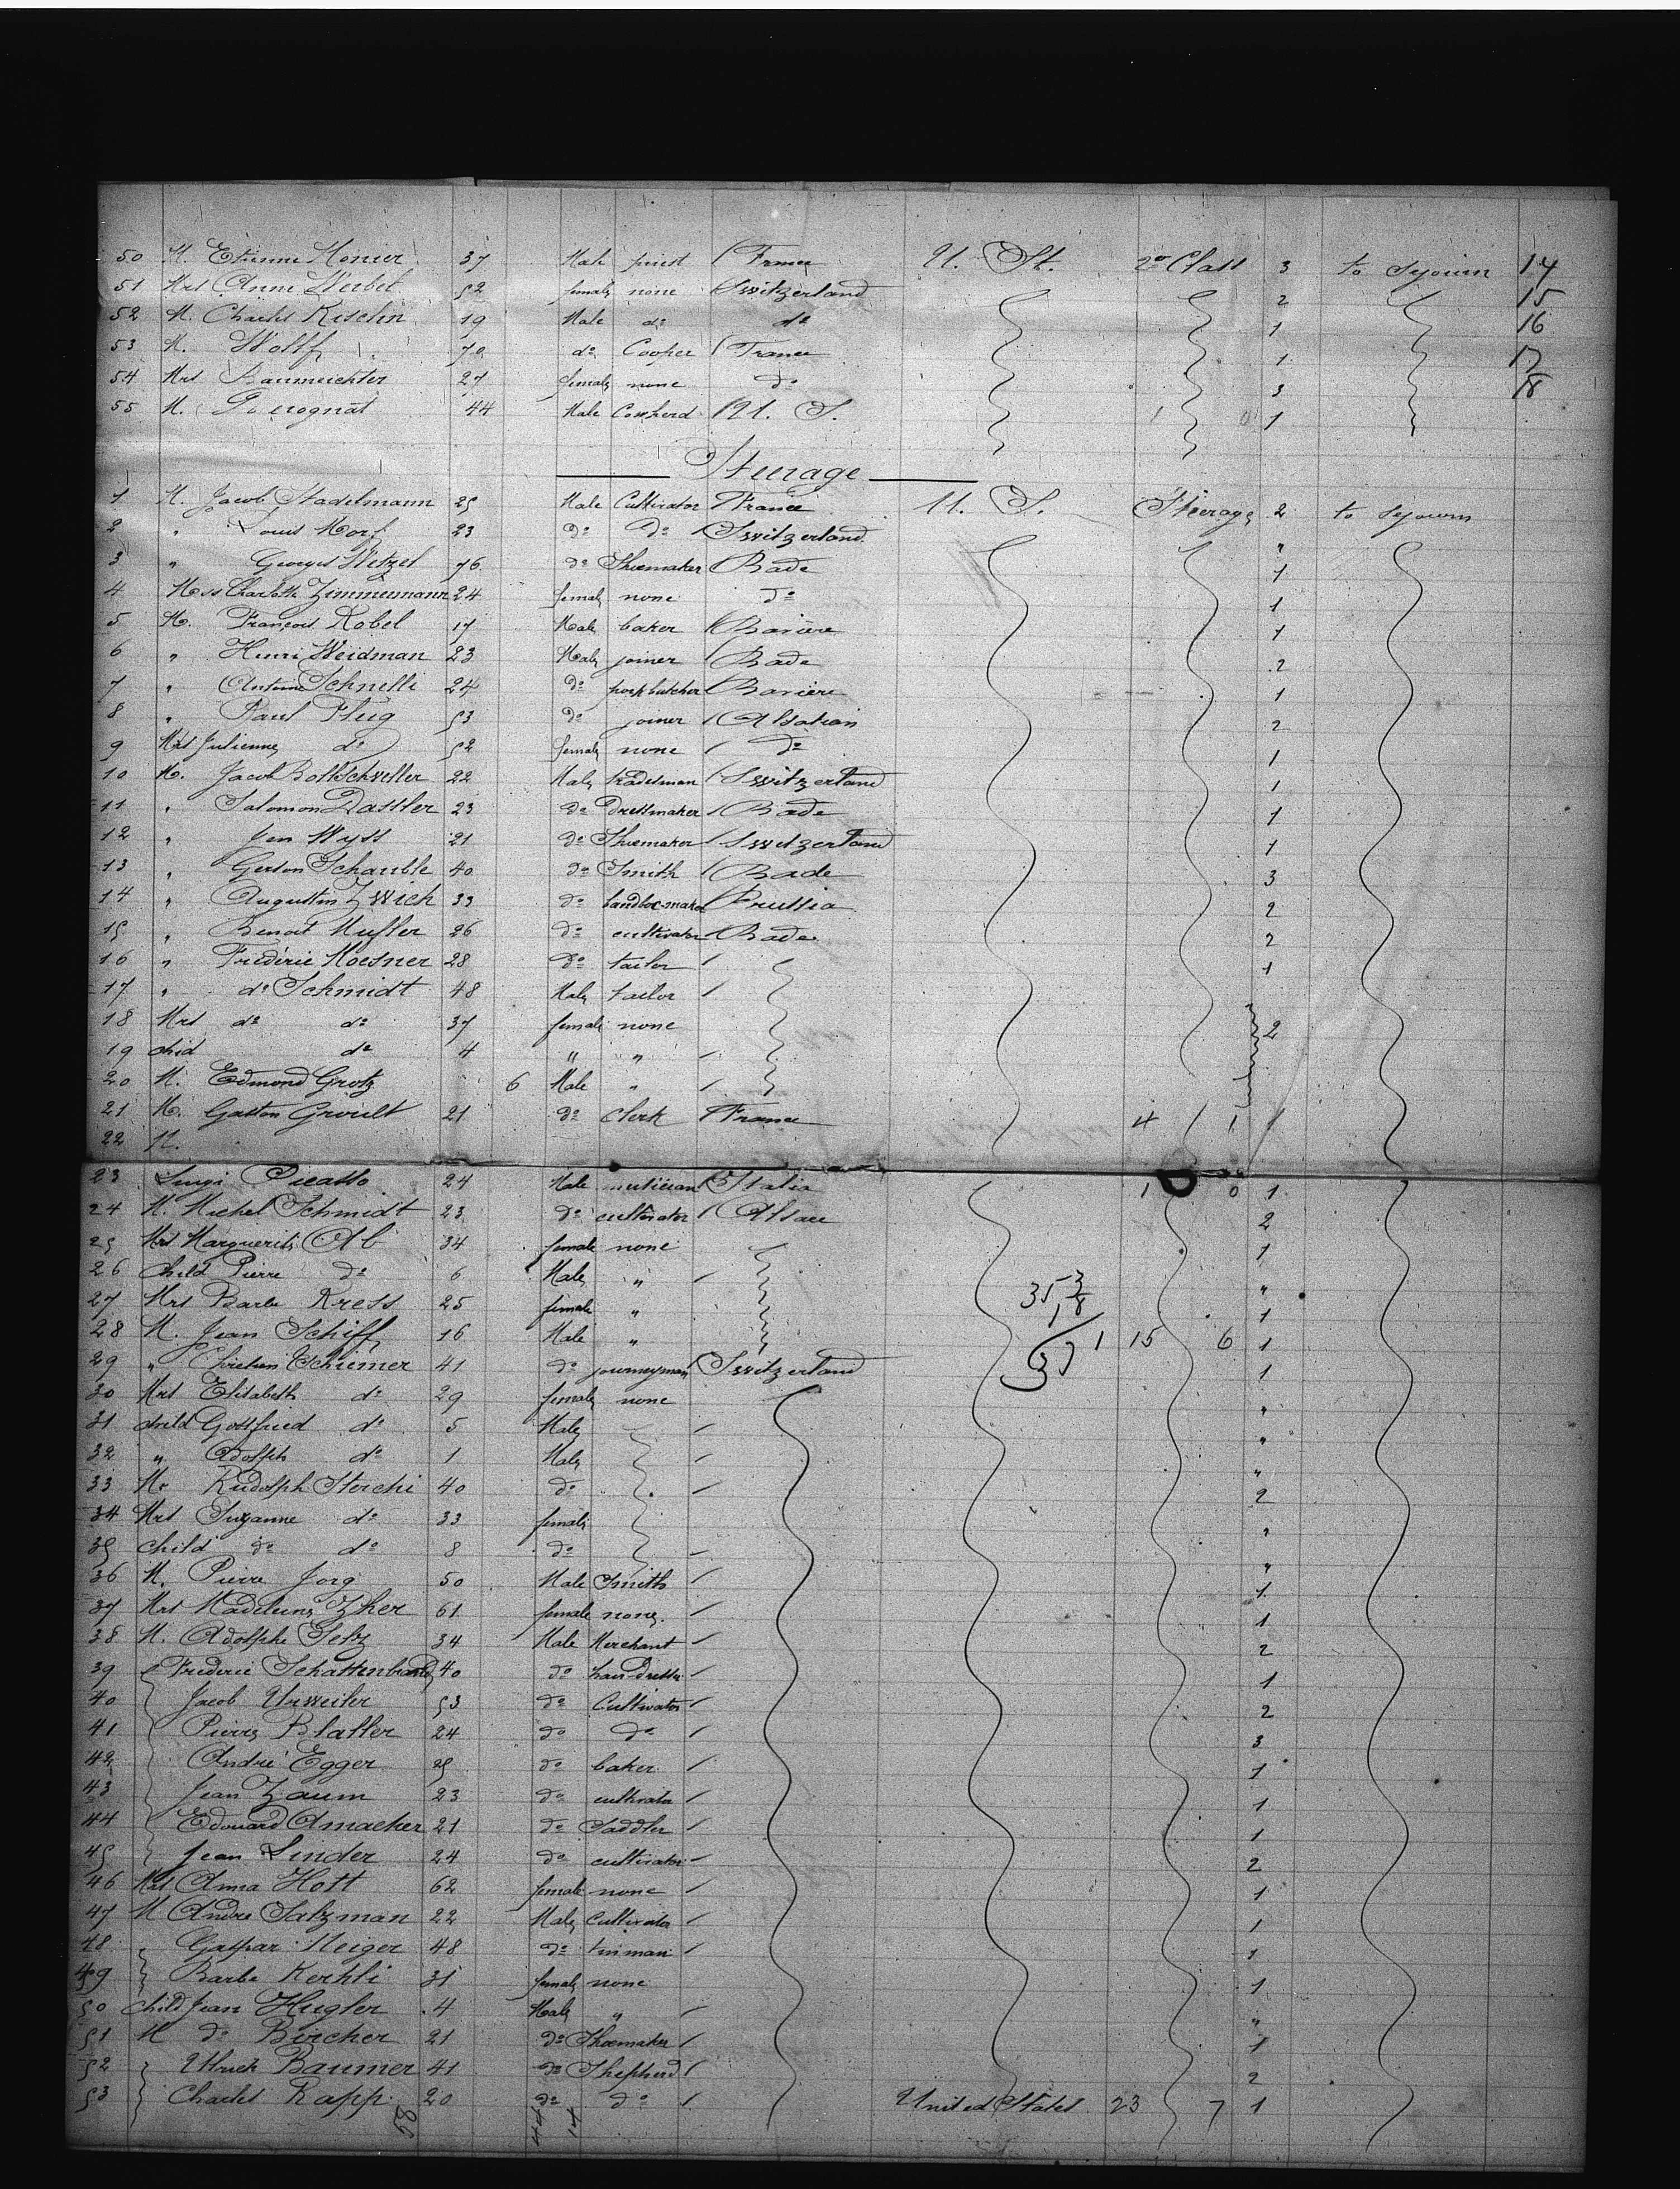 50 M. Etienne Monier 37 Male priest France U. St. 2d Class 3 to sejourn 14
51 Mrs Anne Weibel 52 female none Switzerland 2 15
52 M. Charles Kischin 19 Male do do 1 16
53 M. Wolff 70 do Cooper France 1 17
54 Mrs Baumeichter 27 female none do 3 18
55 M. 44 Male U. S. 1 0 1
Steerage
1 M. Jacob Stadelmann 25 Male Cultivator France U. S. Steerage 2 to sejourn
2 " Louis Morf 23 do do Switzerland "
3 " Georges Wetzel 76 do Shoemaker Bade 1
4 Miss Charlotte Zimmermann 24 female none do 1
5 M. François Kobel 17 Male baker Bavière 1
6 " Henri Weidman 23 Male joiner Bade 2
7 " Antoine Schnelli 24 do porkbutcher Bavière 1
8 " Paul Flug 53 do joiner Alsatian 2
9 Mrs Julienne do 52 female none do 1
10 M. Jacob Bothschveller 22 Male tradesman Switzerland 1
11 " Salomon Dassler 23 do Dressmaker Bade 1
12 " Jen Wyss 21 do Shoemaker Switzerland 1
13 " Gerson Schauble 40 do Smith Bade 3
14 " Augustin Zwich 33 do bandbox-maker Prussia 2
15 " Benoit Musler 26 do cultivator Bade 2
16 " Fréderic Moesner 28 do tailor 1
17 " do Schmidt 48 Male tailor
18 Mrs do do 37 female none 2
19 chid do 4 " "
20 M. Edmond Grotz 6 Male "
21 M. Gaston Groult 21 do Clerk France 4 1 1
22 M.
23 Luigi Picasso 24 Male musician Italia 1 0 1
24 M. Michel Schmidt 23 do cultivator Alsace 2
25 Mrs Marguerite Ab 34 female none 1
26 Child Pierre do 6 Male " "
27 Mrs Barbe Kress 25 female " 35 3/8 1
28 M. Jean Schiff 16 Male " 1 15 6 1
29 " Chretien Schiemer 41 do journeyman Switzerland 37 1
30 Mrs Elisabeth do 29 female none "
31 child Gottfried do 5 Male "
32 " Adolph do 1 Male "
33 Mr Rudolph Sterchi 40 do 2
34 Mrs Suzanne do 33 female "
35 child do do 8 do "
36 M. Pierre Jorg 50 Male Smith 1
37 Mrs Madeleine Zher 61 female none 1
38 M. Adolphe Seltz 34 Male Merchant 2
39 Frederic Schattenbrand 40 do hair dresser 1
40 Jacob Urweiler 53 do Cultivator 2
41 Pierre Blatter 24 do do 3
42 André Egger 25 do baker 1
43 Jean Zaum 23 do cultivator 1
44 Edouard Amacher 21 do Saddler 1
45 Jean Linder 24 do cultivator 2
46 Mrs Anna Hott 62 female none 1
47 M Andre Salzman 22 Male Cultivator 1
48 " Gaspar Neiger 48 do tinman 1
49 Barbe Kerhli 31 female none 1
50 child Jean Hugler 4 Male " "
51 M do Bircher 21 do Shoemaker 1
52 Ulrich Baumer 41 do Shepherd 2
53 Charles Rapp 20 do do United States 23 7 1